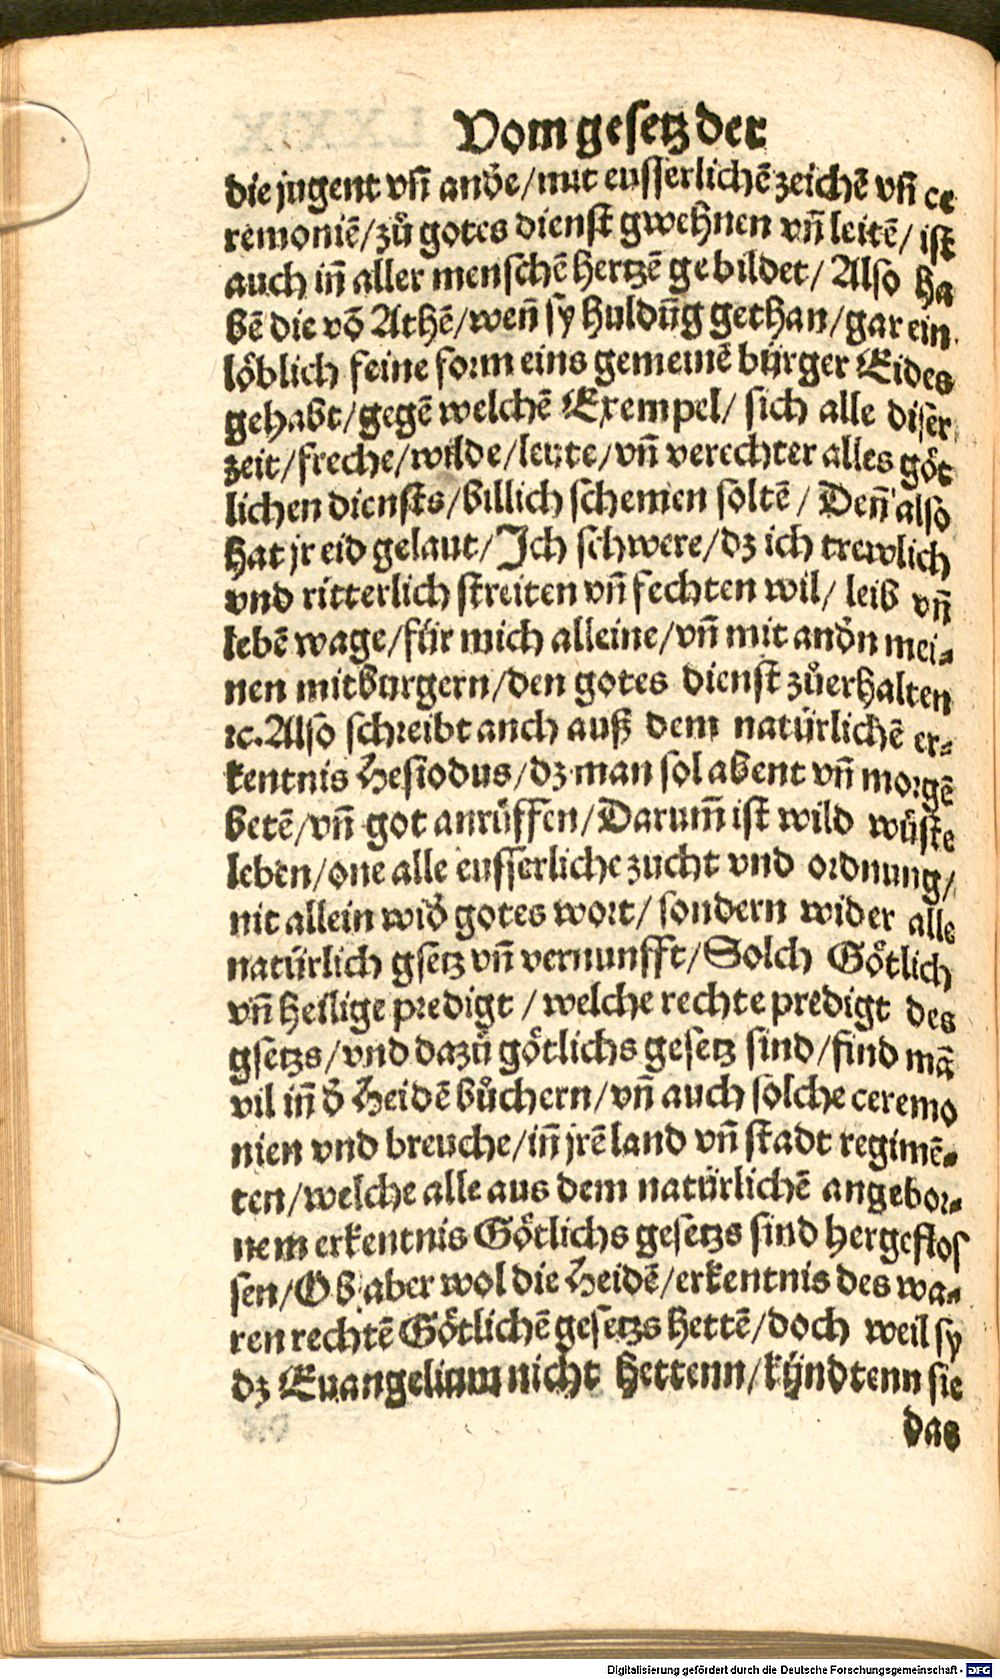 Vom gesetz der
die jugent vñ andͤe/mit eusserlichē zeichē vñ ce
remoniē/zů gotes dienst gwehnen vñ leitē/ ist
auch iñ aller menschē hertzē gebildet/ Also ha
bē die vō Athē/weñ sy huldũg gethan/gar ein
löblich feine form eins gemeinē bürger Eides
gehabt/gegē welchē Exempel/ sich alle diser
zeit/freche/wilde/leute/vñ verechter alles göt
lichen diensts/billich schemen soltē/ Deñ also
hat jr eid gelaut/Ich schwere/dz ich trewlich
vnd ritterlich streiten vñ fechten wil/ leib vñ
lebē wage/für mich alleine/vñ mit andͤn mei⸗
nen mitburgern/den gotes dienst zůerhalten
ꝛc. Also schreibt auch auß dem natürlichē er⸗
kentnis Hesiodus/dz man sol abent vñ morgē
betē/vñ got anrůffen/Darum̄ ist wild wüste
leben/one alle eusserliche zucht vnd ordnung/
nit allein widͤ gotes wort/ sondern wider alle
natürlich gsetz vñ vernunfft/Solch Götlich
vñ heilige predigt /welche rechte predigt des
gsetzs/vnd dazů götlichs gesetz sind/find mā
vil iñ dͤ Heidē bůchern/vñ auch solche ceremo
nien vnd breuche/iñ jrē land vñ stadt regimē⸗
ten/welche alle aus dem natürlichē angebor⸗
nem erkentnis Götlichs gesetzs sind hergeflos
sen/Ob aber wol die Heidē/erkentnis des wa⸗
ren rechtē Götlichē gesetzs hettē/doch weil sy
dz Euangelium nicht hettenn/kündtenn sie
das
Digitalisierung gefördert durch die Deutsche Forschungsgemeinschaft - DFG